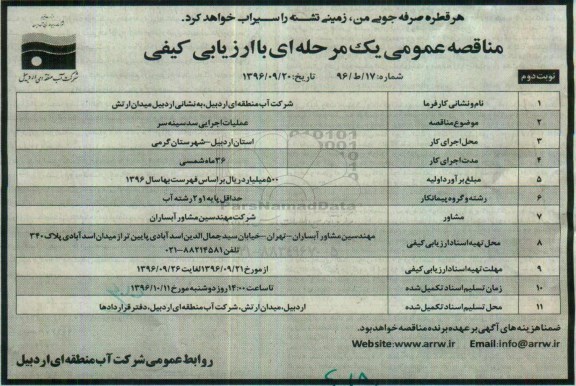 هر قطره صرفه جویی من، زمینی تشنه را سیراب خواهد کرد.
مناقصه عمومی یک مرحله ای با ارزیابی کیفی
شرکت آب منطقه ای اردبیل
شماره: ۱۷/ط/۹۶ تاریخ: ۱۳۹۶/۰۹/۲۰
نوبت دوم
۱ نام و نشانی کارفرما شرکت آب منطقه ای اردبیل، به نشانی اردبیل میدان ارتش
۲ موضوع مناقصه عملیات اجرایی سد سینه سر
۳ محل اجرای کار استان اردبیل - شهرستان گرمی
۴ مدت اجرای کار ۳۶ ماه شمسی
۵ مبلغ برآورد اولیه ۵۰۰ میلیارد ریال بر اساس فهرست بها سال ۱۳۹۶
۶ رشته و گروه پیمانکار حداقل پایه ۱ و ۲ رشته آب
۷ مشاور شرکت مهندسین مشاور آبساران
۸ محل تهیه اسناد ارزیابی کیفی مهندسین مشاور آبساران - تهران - خیابان سید جمال الدین اسدآبادی پایین تر از میدان اسدآبادی پلاک ۳۴۰
تلفن ۸۸۲۱۴۵۸۱-۰۲۱
۹ مهلت تهیه اسناد ارزیابی کیفی از مورخ ۱۳۹۶/۰۹/۲۱ لغایت ۱۳۹۶/۰۹/۲۶
۱۰ زمان تسلیم اسناد تکمیل شده تا ساعت ۱۴:۰۰ روز دوشنبه مورخ ۱۳۹۶/۱۰/۱۱
۱۱ محل تسلیم اسناد تکمیل شده اردبیل، میدان ارتش، شرکت آب منطقه ای اردبیل، دفتر قراردادها
ParsNamadData
ضمنا هزینه های آگهی بر عهده برنده مناقصه خواهد بود.
Website:www.arrw.ir Email:info@arrw.ir
روابط عمومی شرکت آب منطقه ای اردبیل